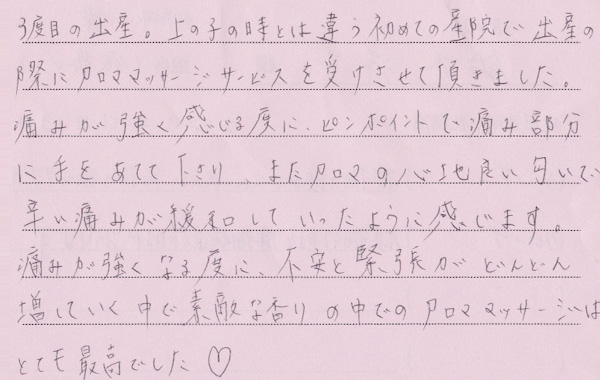 3度目の出産。上の子の時とは違う初めての産院で出産の
際にアロママッサージサービスを受けさせて頂きました。
痛みが強く感じる度に、ピンポイントで痛み部分
に手をあてて下さり、またアロマの心地良い匂いで
辛い痛みが緩和していったように感じます。
痛みが強くなる度に、不安と緊張がどんどん
増していく中で素敵な香りの中でのアロママッサージは
とても最高でした♡